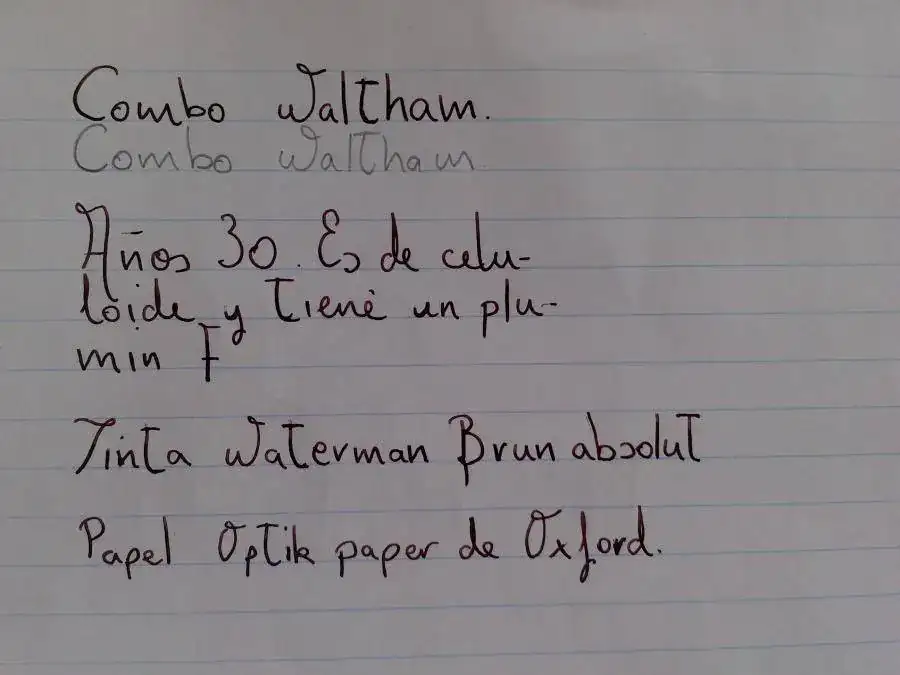 Combo Waltham.
Combo Waltham
Años 30. Es de celu-
loide y tiene un plu-
min F
Tinta Waterman Brun absolut
Papel Optik paper de Oxford.